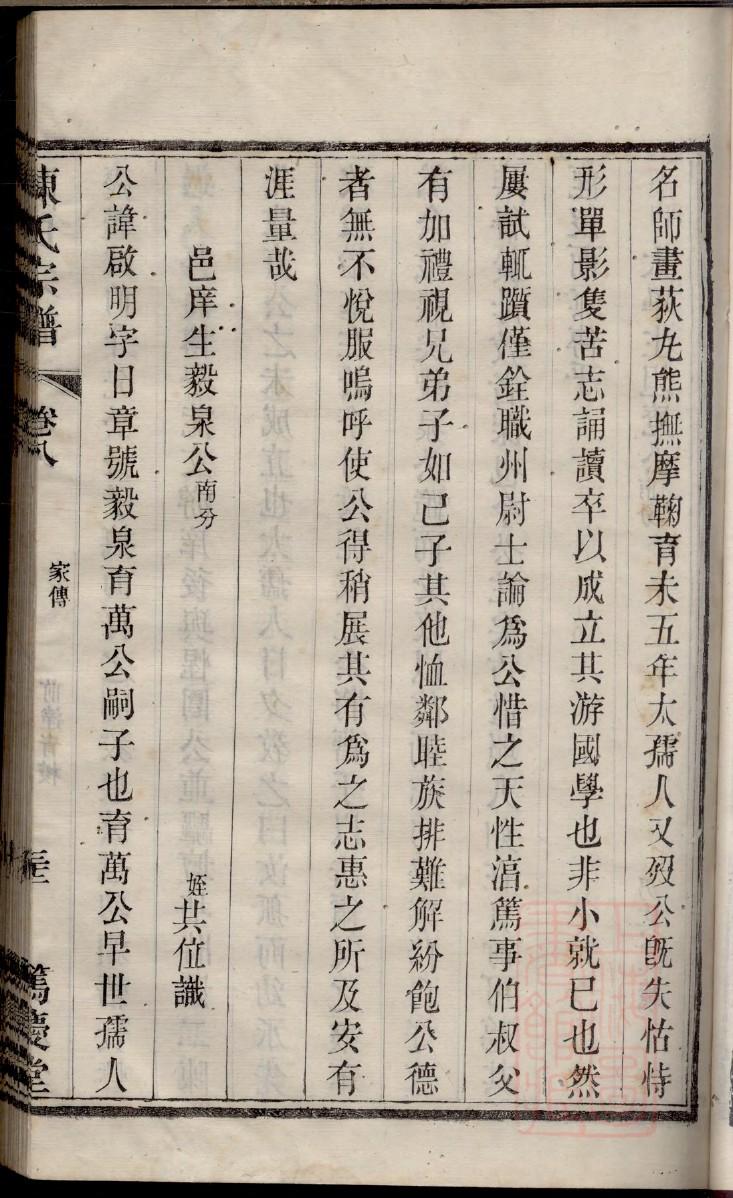 名師畫荻丸熊撫摩鞠育未五年太孺人又歿公旣失怙恃
形單影隻苦志誦讀卒以成立其游國學也非小就已也然
屢試輒躓僅銓職州尉士論爲公惜之天性滈篤事伯叔父
有加禮視兄弟子如己子其他恤鄰睦族排難解紛飽公德
者無不悅服嗚呼使公得稍展其有爲之志惠之所及安有
涯量哉
邑庠生毅泉公南分
姪共位識
公諱啟明字日章號毅泉育萬公嗣子也育萬公早世孺人
陳氏宗譜 卷八 家傳 篤慶堂